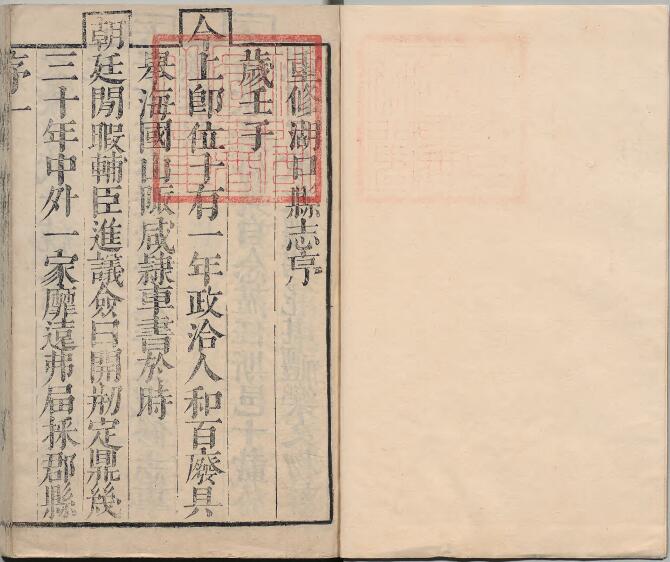 重修湖口縣志序
歲壬子
今上卽位十有一年政洽人和百廢具
舉海國山陬咸隷車書於時
朝廷閒暇輔臣進議僉曰開刱定鼎幾
三十年中外一家靡遠弗屆採郡縣
序一